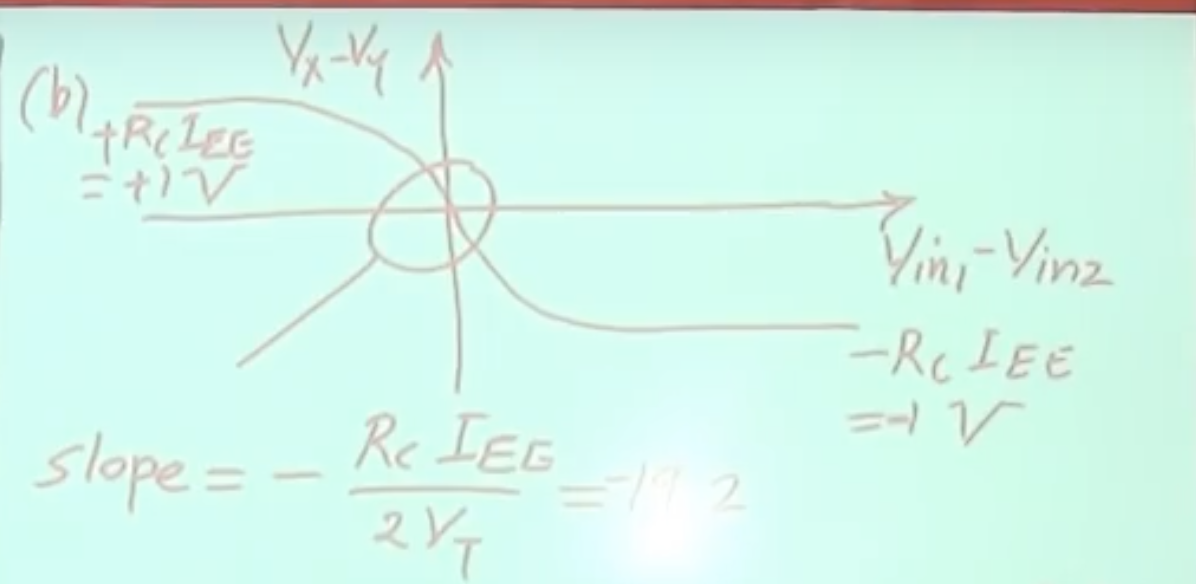 Vx-Vy
(b)
+Rc IEE
= +1 V
Vin1 - Vin2
-Rc IEE
=-1 V
slope = - Rc IEE / 2 VT = -19.2